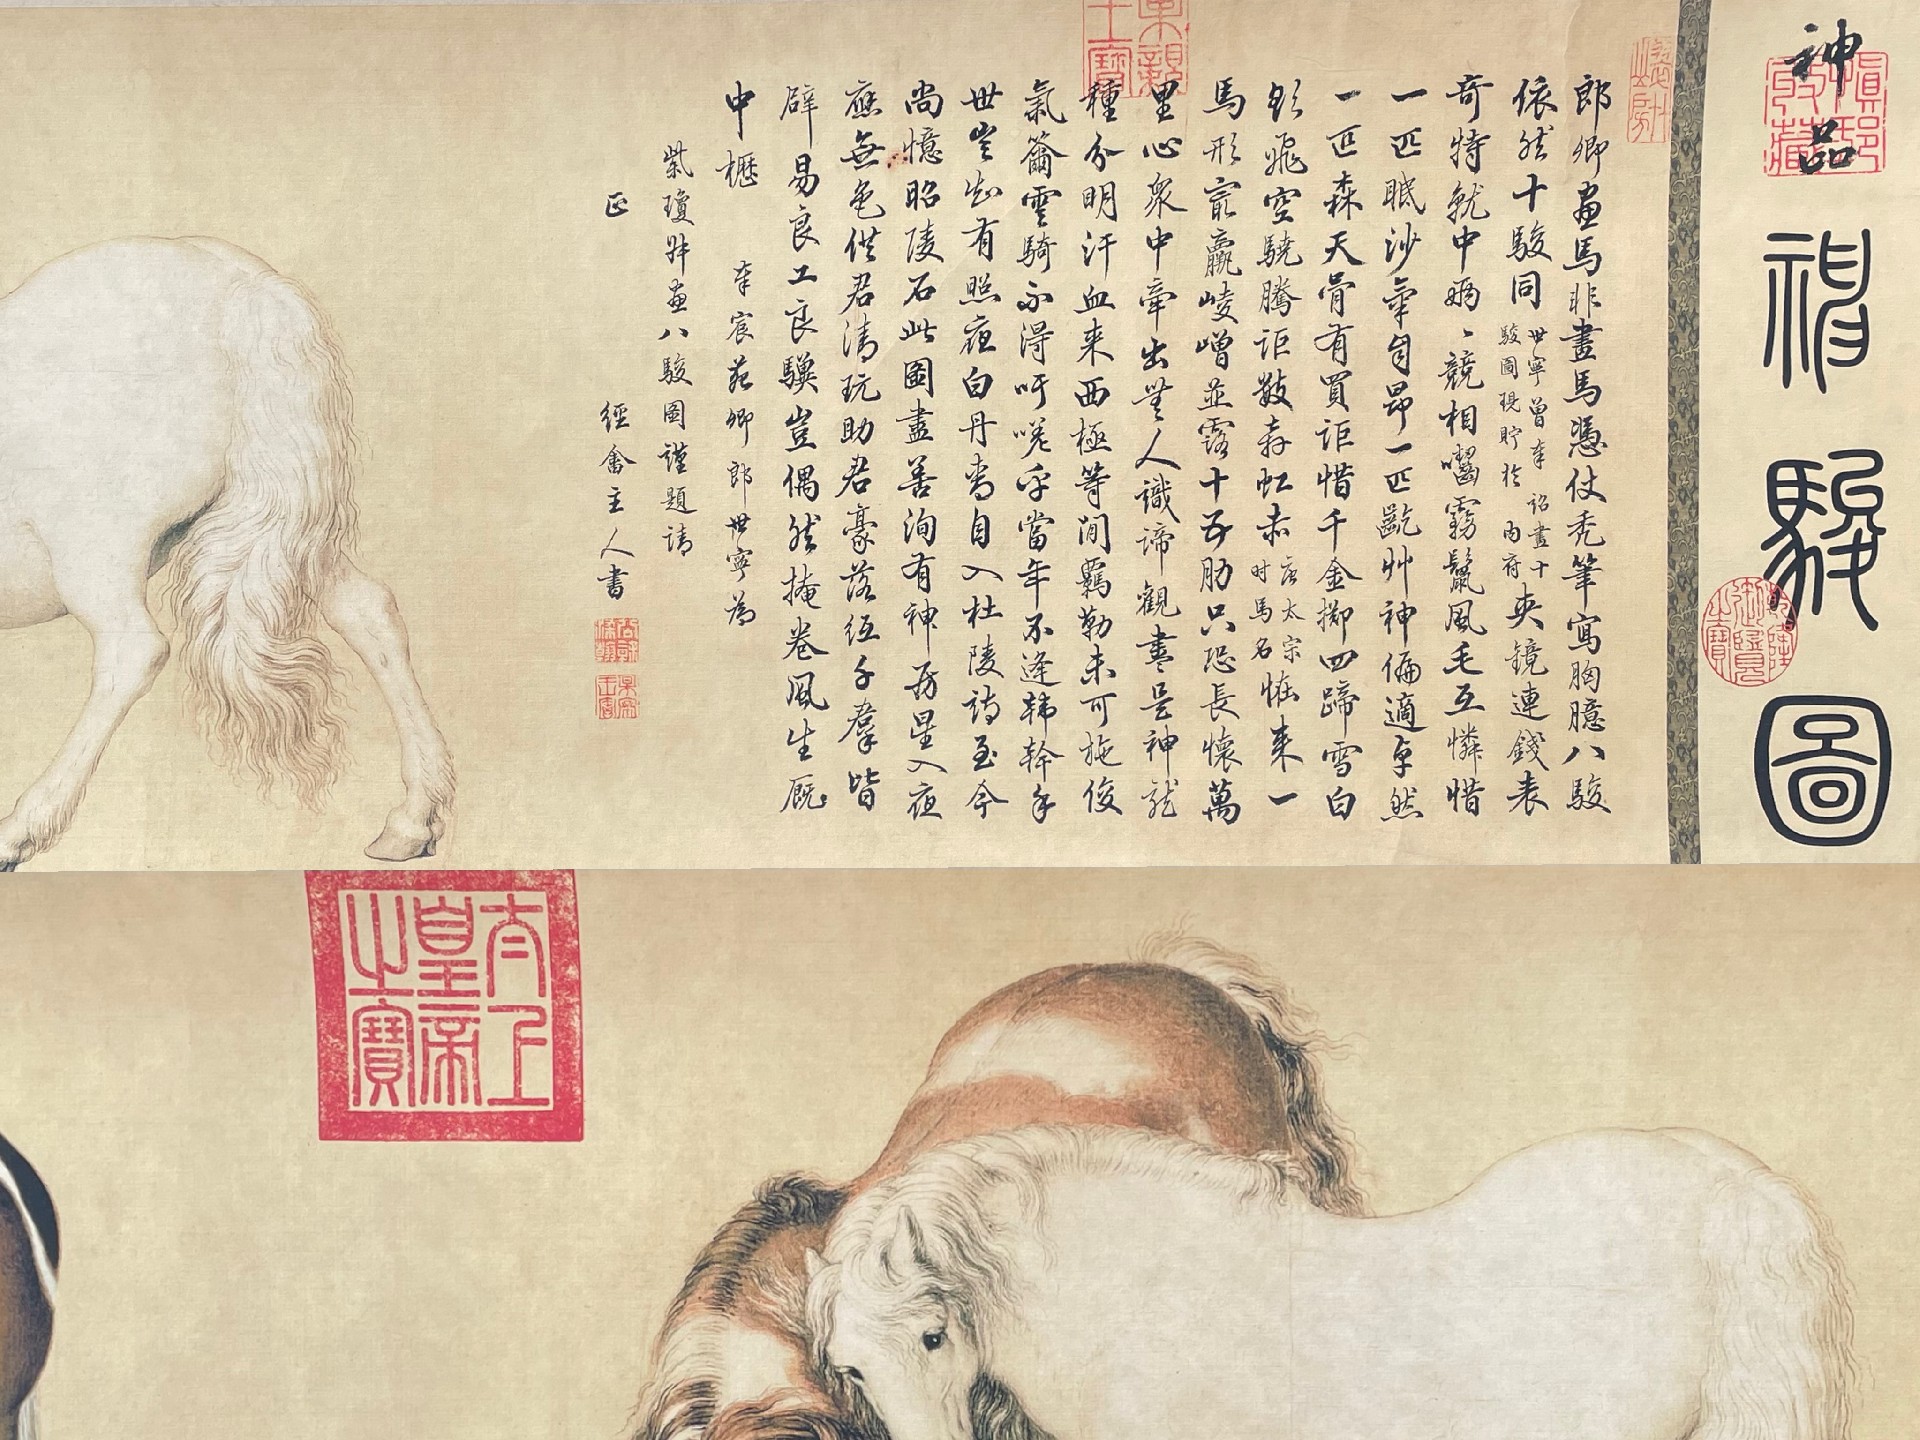 神品
神駿圖
郎卿画馬非畫馬憑仗禿筆寫胸臆八駿
依然十駿同
世寧曾奉 詔畫十
駿圖現貯於 內府
夾鏡連錢表
奇特就中兩〻競相囓霧鬣風毛互憐惜
一匹眠沙氣自昂一匹齕艸神偏適卓然
一匹森天骨有買詎惜千金擲四蹄雪白
彩飛空驍騰詎數奔虹赤
唐太宗
时馬名
恠来一
馬形容羸崚嶒並露十五肋只恐長懷萬
里心眾中牽出無人識諦觀盡是神龍
種分明汗血来西極等閒羈勒未可施俊
氣籋雲騎不得吁嗟乎當年不逢韩幹手
世豈知有照夜白丹青自入杜陵詩至今
尚憶昭陵石此圖盡善洵有神房星入夜
應無色供君清玩助君豪落紙千群皆
辟易良工良驥豈偶然掩卷風生厩
中櫪 奉宸苑卿郎世寧為
紫瓊㪺画八駿圖謹題請
正 經畬主人書
果親王寶
乾隆御覽之寶
太上皇帝之寶